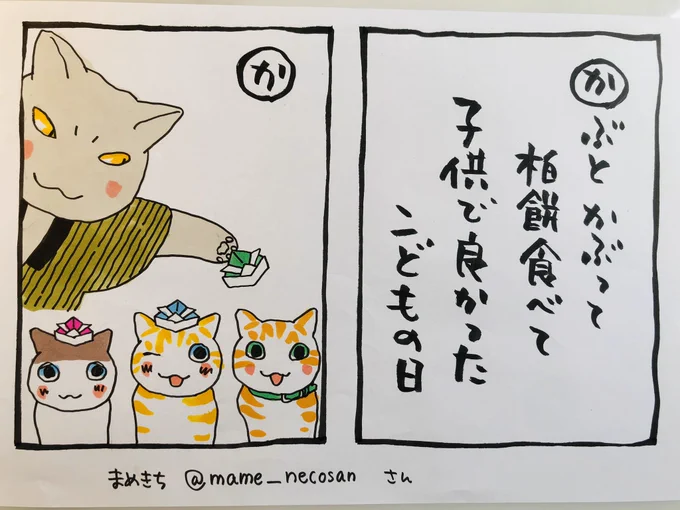 か
か
ぶとかぶって
柏餅食べて
子供で良かった
こどもの日
まめきち @mame_necosan さん